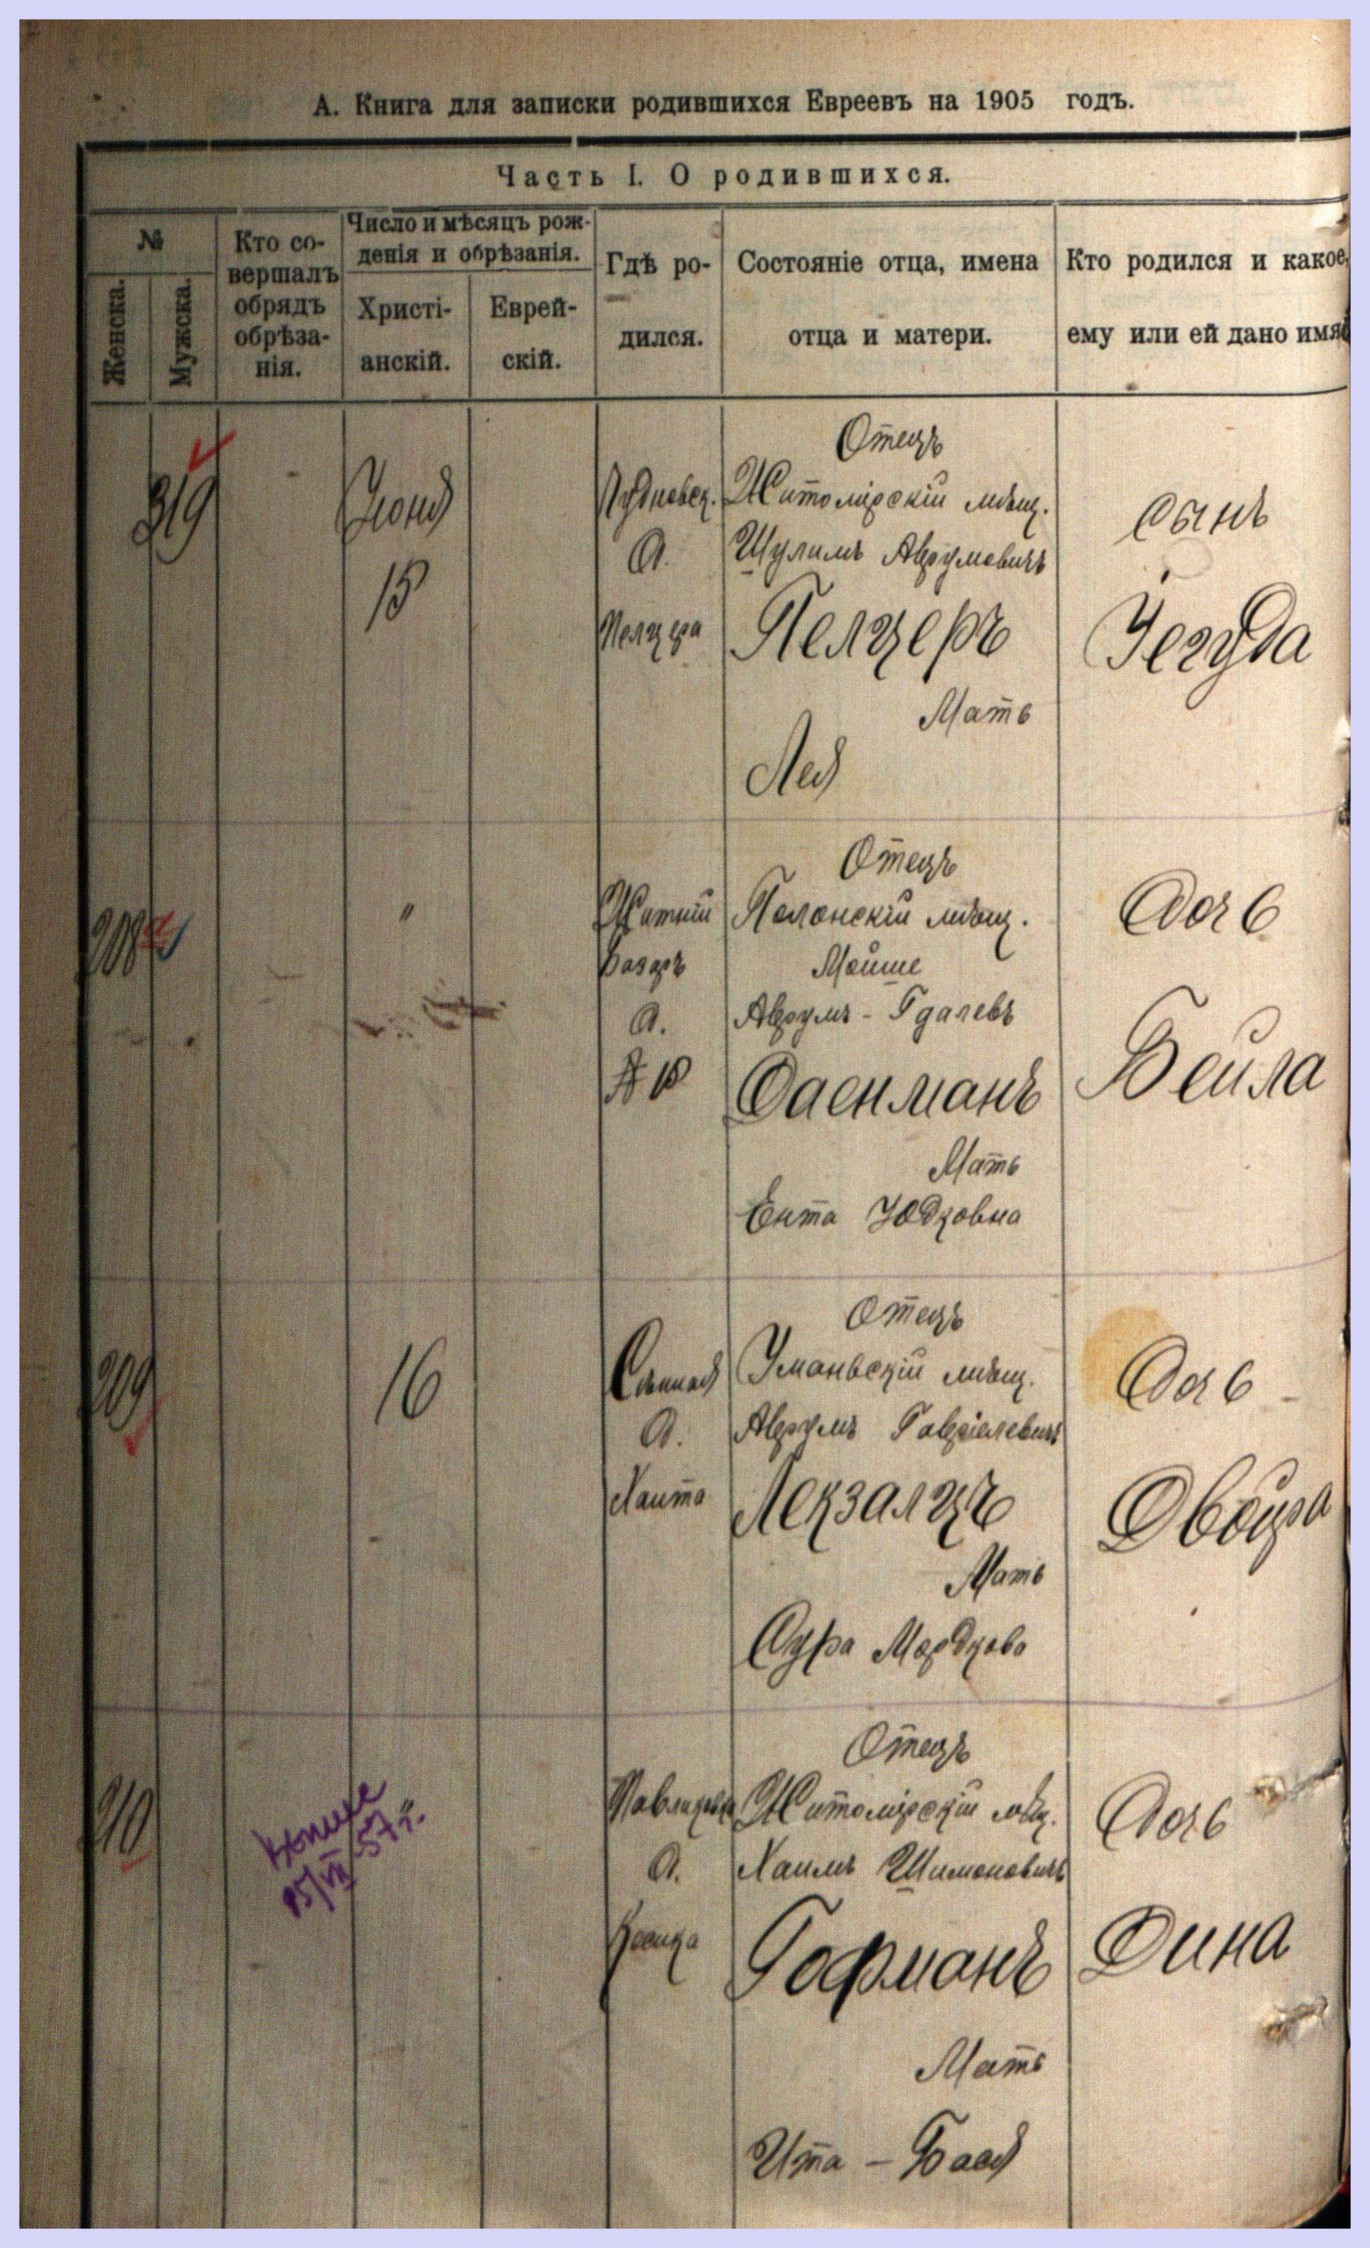 А. Книга для записки родившихся Евреевъ на 1905 годъ.
Часть I. О родившихся.
№
Женска.
Мужска.
Кто со-
вершалъ
обрядъ
обрѣза-
нія.
Число и мѣсяцъ рож-
денія и обрѣзанія.
Христі-
анскій.
Еврей-
скій.
Гдѣ ро-
дился.
Состояніе отца, имена
отца и матери.
Кто родился и какое,
ему или ей дано имя
319
Іюня
15
Чудновск.
д.
Пелцера
Отецъ
Житомірскій мѣщ.
Шулимъ Аврумовичъ
Пелцеръ
Мать
Лея
сынъ
Іегуда
208
"
Житній
базаръ
д.
№ 18
Отецъ
Полонскій мѣщ.
Мойше
Аврумъ - Гдалевъ
Фаенманъ
Мать
Ента Юдковна
Дочь
Бейла
209
16
Сѣнная
д.
Хаита
Отецъ
Уманьскій мѣщ.
Аврумъ Гавріелевичъ
Лекзалцъ
Мать
Сура Мордкова
Дочь
Двойра
210
"
15/VII 57 г.
д.
Отецъ
Житомірскій мѣщ.
Хаимъ Шимоновичъ
Гофманъ
Мать
Ита - Бася
Дочь
Дина